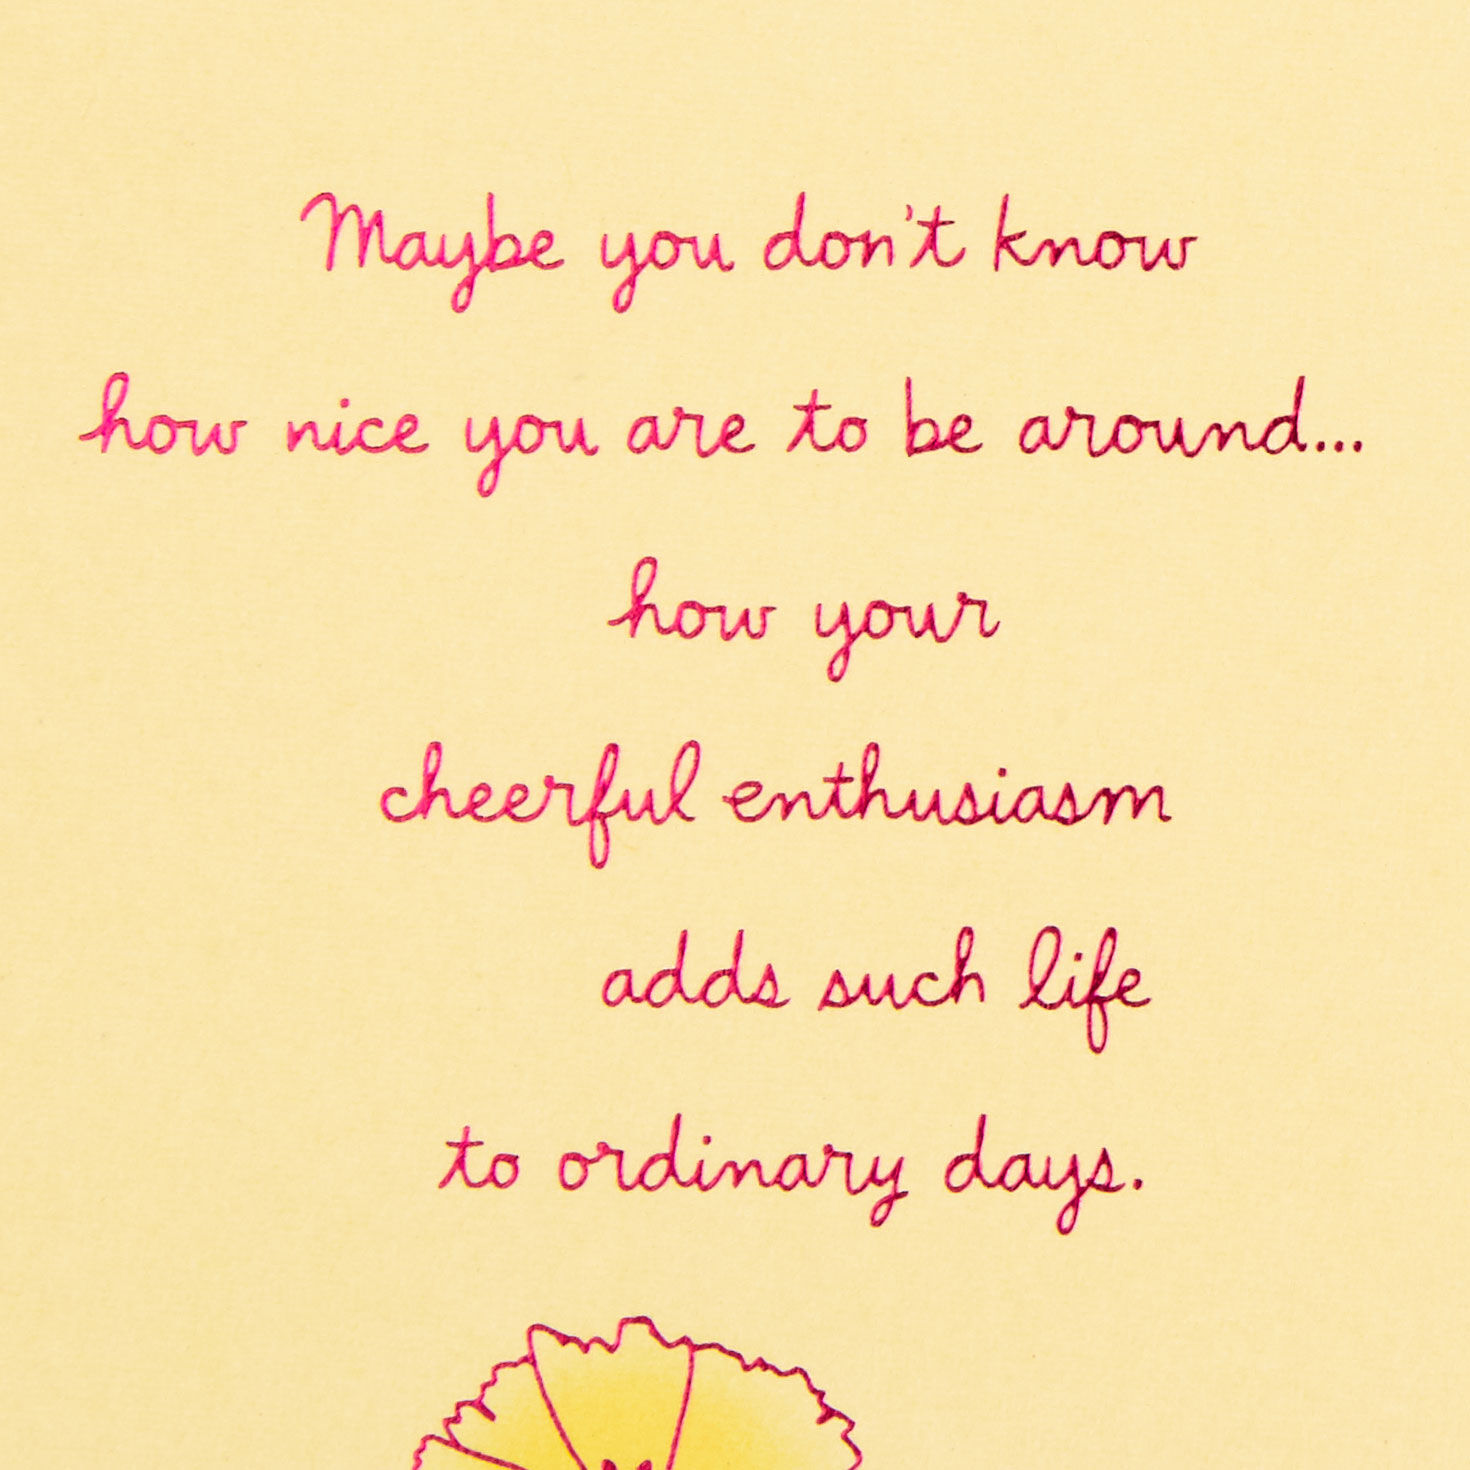 Maybe you don't know
how nice you are to be around...
how your
cheerful enthusiasm
adds such life
to ordinary days.